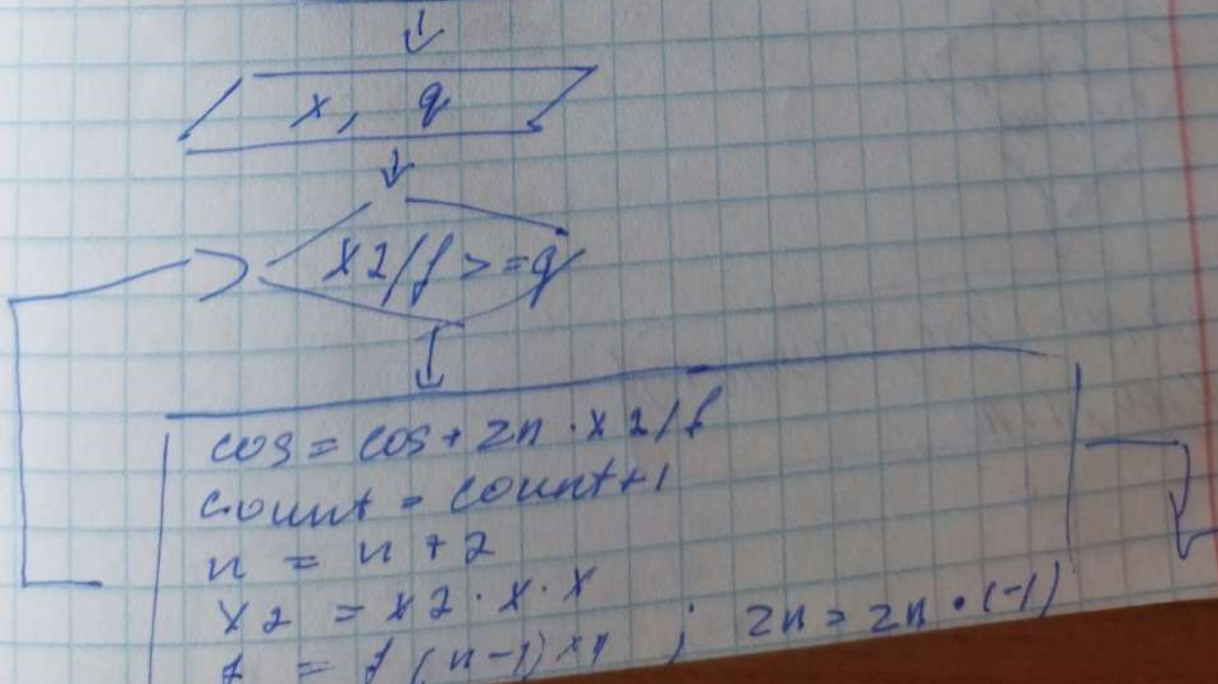 x, q
x2/f >= q
cos = cos + zn · x2/f
count = count + 1
n = n + 2
x2 = x2 · x · x
f = f (n-1) × n ; zn = zn · (-1)